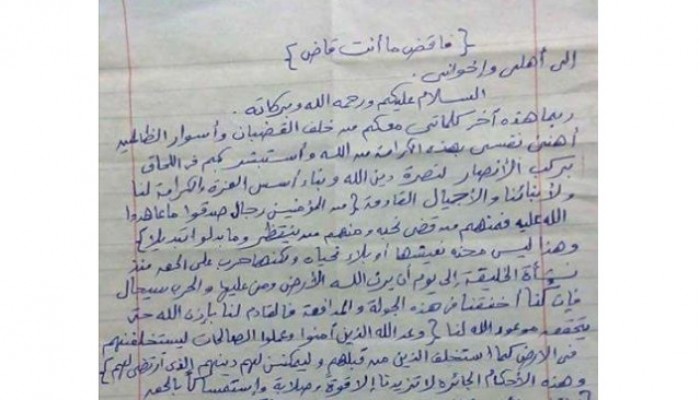 { فاقض ما أنت قاض }
إلى أهلى وإخوانى .
السلام عليكم ورحمه الله وبركاته .
ربما هذه آخر كلماتى معكم من خلف القضبان وأسوار الظالمين
أهنئ نفسى بهذه الكرامة من الله وأستبشر بكم فى اللحاق
بركب الأنصار لنصرة دين الله وبناء أسس العزة والكرامة لنا
ولأبنائنا والأجيال القادمة { من المؤمنين رجال صدقوا ما عاهدوا
الله عليه فمنهم من قضى نحبه ومنهم من ينتظر وما بدلوا تبديلا }
وهذا ليس محنه نعيشها أو بلاء نحياه ولكنها حرب على الحق منذ
نشأة الخليقة إلى يوم أن يرث الله الأرض ومن عليها والحرب سجال
فإن كنا أخفقنا فى هذه الجولة والمدافعة فالقادم لنا بإذن الله حتى
يتحقق موعود الله لنا { وعد الله الذين آمنوا وعملوا الصالحات ليستخلفنهم
فى الارض كما استخلف الذين من قبلهم وليمكنن لهم دينهم الذى ارتضى لهم }
وهذه الأحكام الجائره لا تزيدنا إلا قوة وصلابة واستمساكاً بالحق